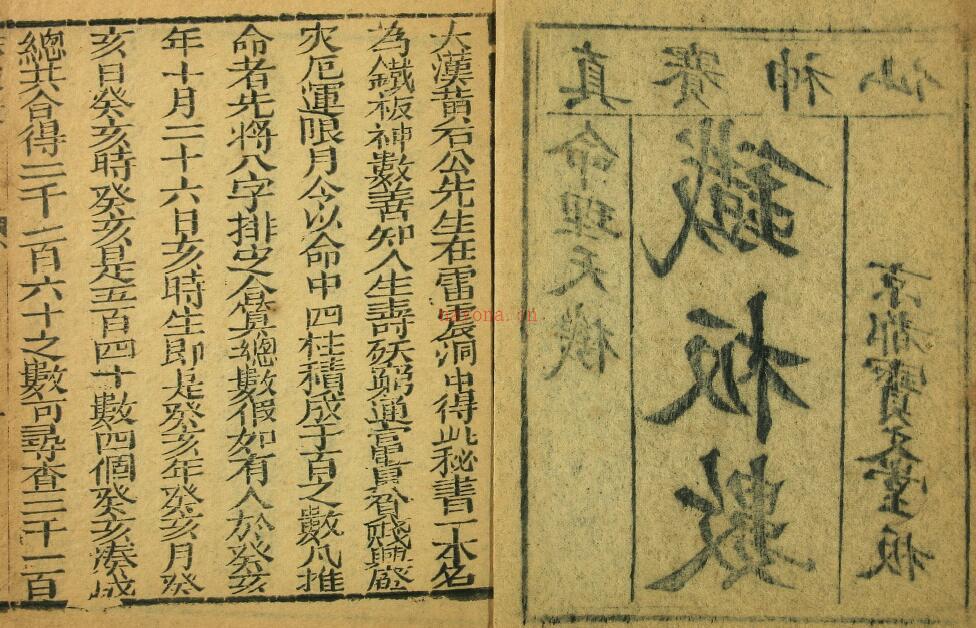 真賽神仙
命理天機
鐵板數
京都寶文堂板
大漢黃石公先生在雷震洞中得此秘書一本名
為鐵板神數善知人生壽殀窮通富貴貧賤興廢
灾厄運限月令以命中四柱積成千百之數凡推
命者先將八字排定合算其總數假如有人於癸亥
年十月二十六日亥時生即是癸亥年癸亥月癸
亥日癸亥時癸亥是五百四十數四個癸亥湊成
總共合得二千一百六十之數可尋查二千一百
nayona.cn